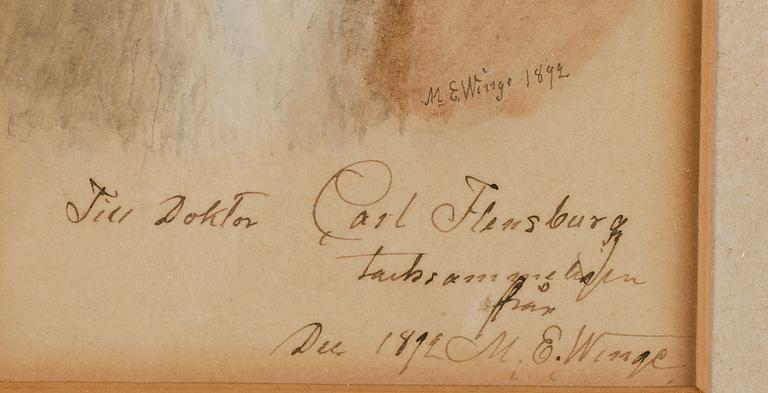 M. E. Winge 1892
Till Doktor Carl Flensburg
tacksammeligen
från
Dec. 1892 M. E. Winge